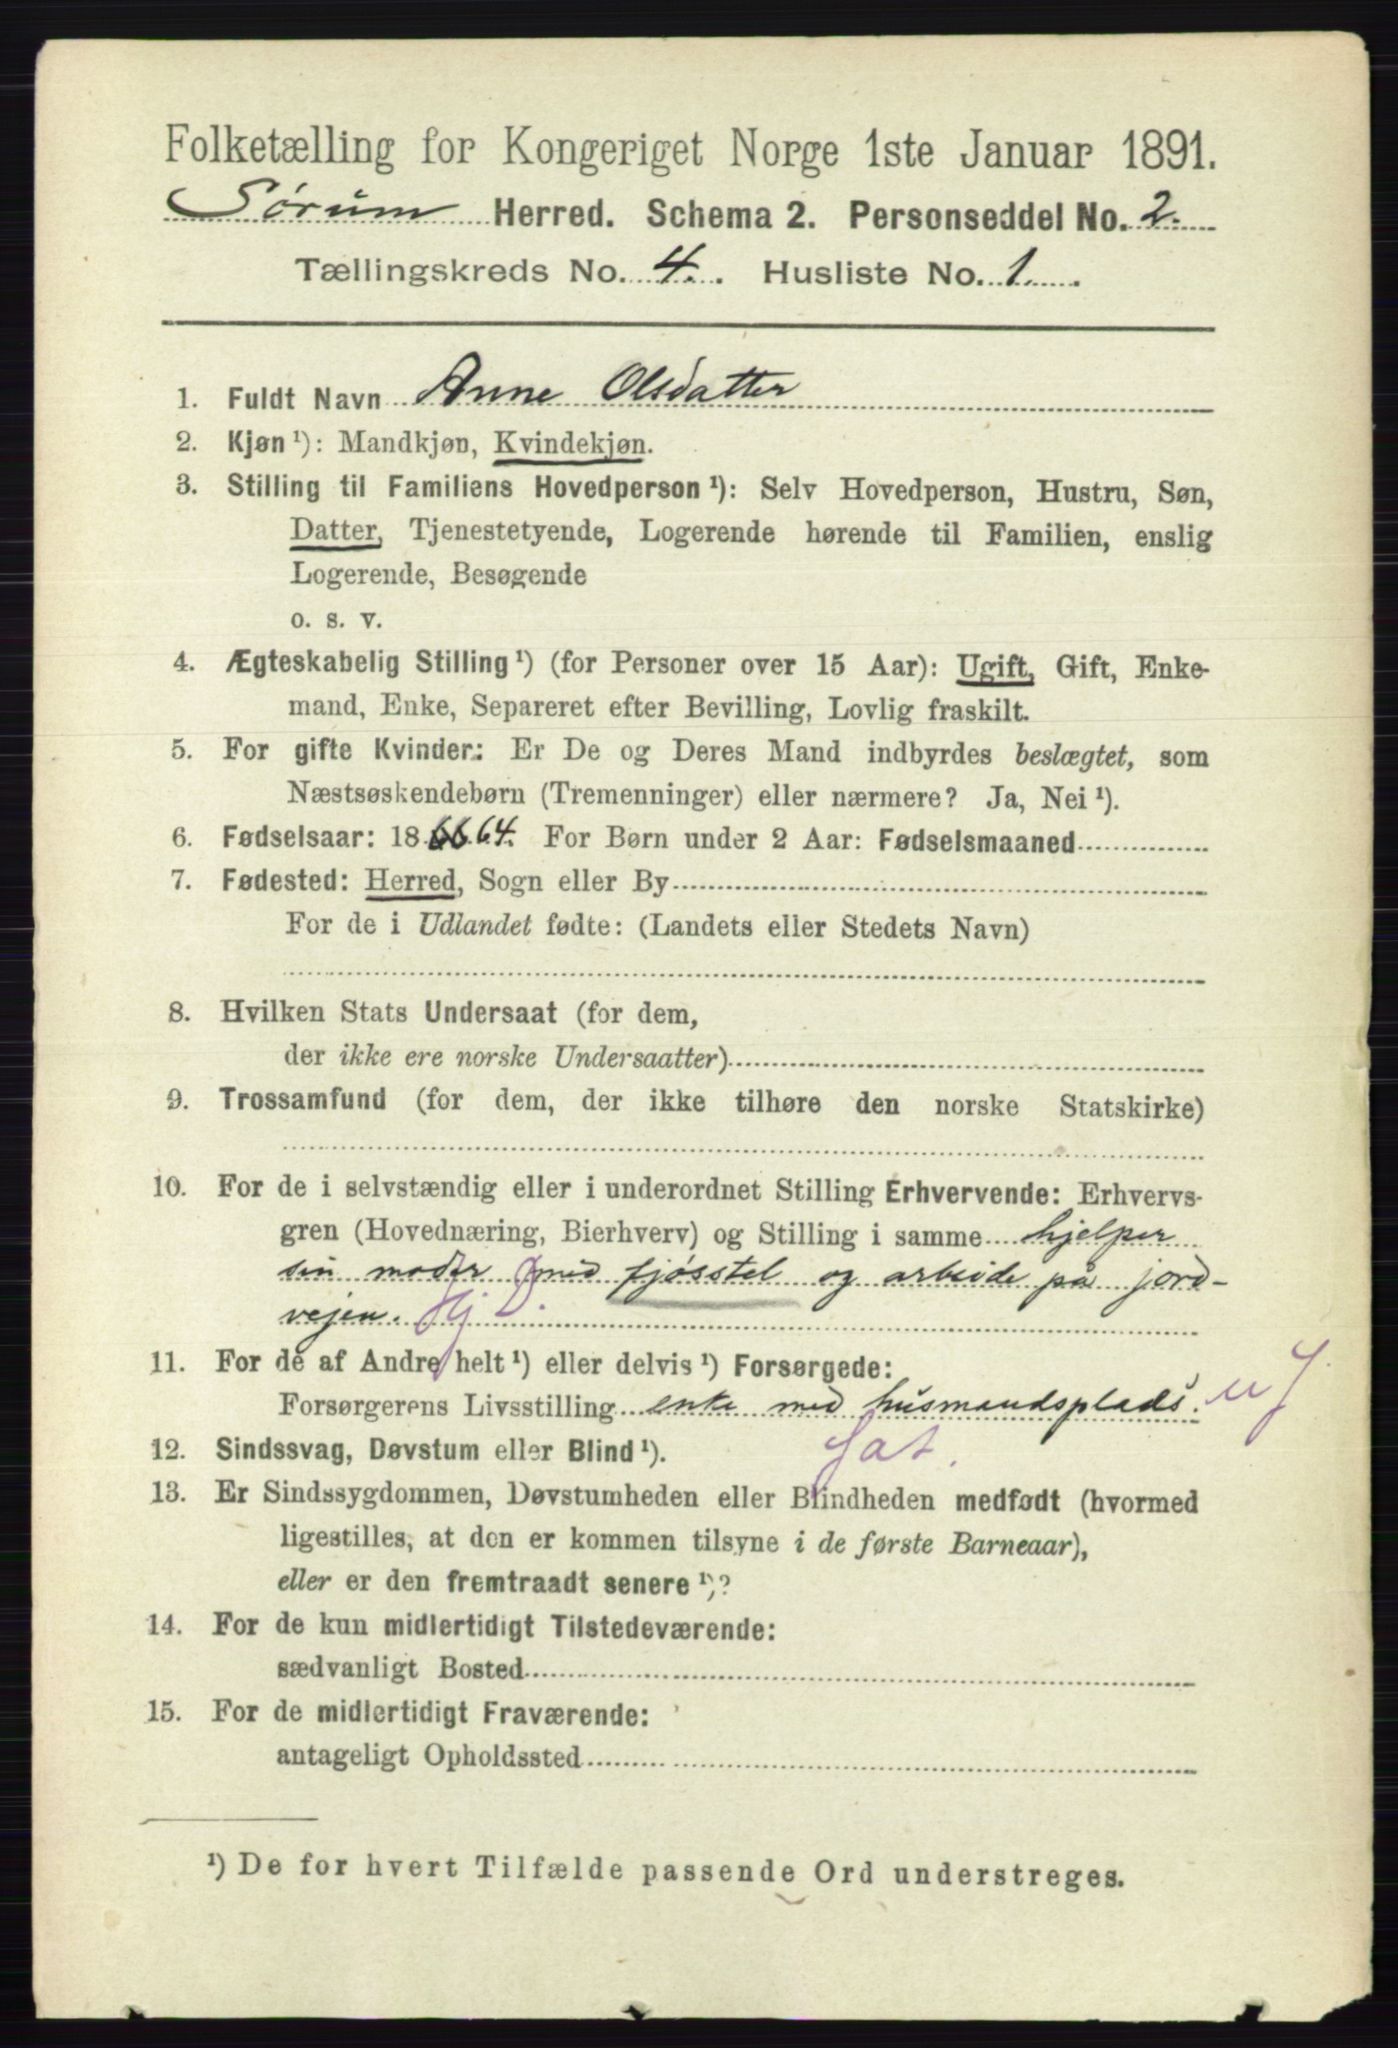 Folketælling for Kongeriget Norge 1ste Januar 1891.
Sørum Herred. Schema 2. Personseddel No. 2.
Tællingskreds No. 4. Husliste No. 1.
1. Fuldt Navn Anne Olsdatter
2. Kjøn ¹): Mandkjøn, Kvindekjøn.
3. Stilling til Familiens Hovedperson ¹): Selv Hovedperson, Hustru, Søn,
Datter, Tjenestetyende, Logerende hørende til Familien, enslig
Logerende, Besøgende
o. s. v.
4. Ægteskabelig Stilling ¹) (for Personer over 15 Aar): Ugift, Gift, Enke-
mand, Enke, Separeret efter Bevilling, Lovlig fraskilt.
5. For gifte Kvinder: Er De og Deres Mand indbyrdes beslægtet, som
Næstsøskendebørn (Tremenninger) eller nærmere? Ja, Nei ¹).
6. Fødselsaar: 18 66 64. For Børn under 2 Aar: Fødselsmaaned
7. Fødested: Herred, Sogn eller By
For de i Udlandet fødte: (Landets eller Stedets Navn)
8. Hvilken Stats Undersaat (for dem,
der ikke ere norske Undersaatter)
9. Trossamfund (for dem, der ikke tilhøre den norske Statskirke)
10. For de i selvstændig eller i underordnet Stilling Erhvervende: Erhvervs-
gren (Hovednæring, Bierhverv) og Stilling i samme hjelper
sin moder med fjøsstel og arbeide på jord-
vejen. Hj D.
11. For de af Andre helt ¹) eller delvis ¹) Forsørgede:
Forsørgerens Livsstilling enke med husmandsplads.
12. Sindssvag, Døvstum eller Blind ¹).
13. Er Sindssygdommen, Døvstumheden eller Blindheden medfødt (hvormed
ligestilles, at den er kommen tilsyne i de første Barneaar),
eller er den fremtraadt senere ¹)?
14. For de kun midlertidigt Tilstedeværende:
sædvanligt Bosted
15. For de midlertidigt Fraværende:
antageligt Opholdssted
¹) De for hvert Tilfælde passende Ord understreges.